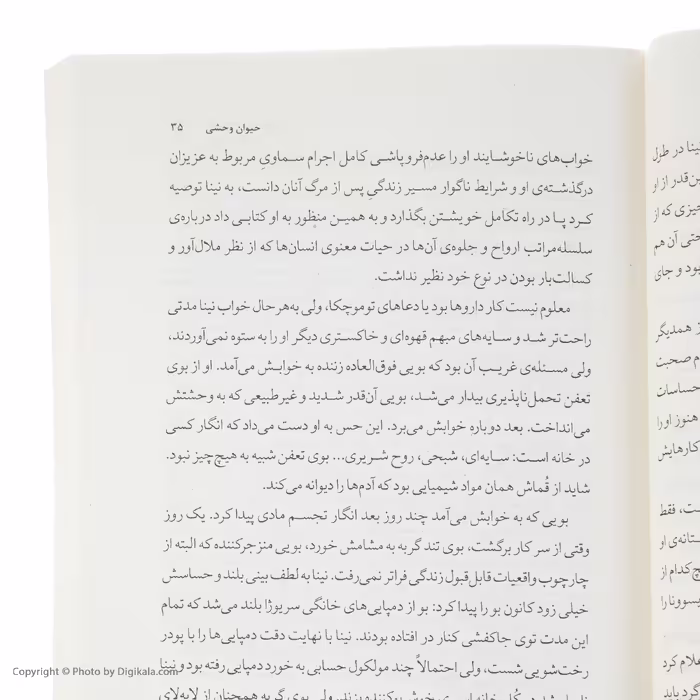 حیوان وحشی ۳۵
خواب‌های ناخوشایند او را عدم‌فروپاشی کامل اجرام سماویِ مربوط به عزیزان
درگذشته‌ی او و شرایط ناگوار مسیر زندگیِ پس از مرگ آنان دانست، به نینا توصیه
کرد پا در راه تکامل خویشتن بگذارد و به همین منظور به او کتابی داد درباره‌ی
سلسله‌مراتب ارواح و جلوه‌ی آن‌ها در حیات معنوی انسان‌ها که از نظر ملال‌آور و
کسالت‌بار بودن در نوع خود نظیر نداشت.
معلوم نیست کار داروها بود یا دعاهای توموچکا، ولی به‌هرحال خواب نینا مدتی
راحت‌تر شد و سایه‌های مبهم قهوه‌ای و خاکستری دیگر او را به ستوه نمی‌آوردند،
ولی مسئله‌ی غریب آن بود که بویی فوق‌العاده زننده به خوابش می‌آمد. او از بوی
تعفن تحمل‌ناپذیری بیدار می‌شد، بویی آن‌قدر شدید و غیرطبیعی که به وحشتش
می‌انداخت. بعد دوباره خوابش می‌برد. این حس به او دست می‌داد که انگار کسی
در خانه است: سایه‌ای، شبحی، روح شریری... بوی تعفن شبیه به هیچ‌چیز نبود.
شاید از قُماش همان مواد شیمیایی بود که آدم‌ها را دیوانه می‌کند.
بویی که به خوابش می‌آمد چند روز بعد انگار تجسم مادی پیدا کرد. یک روز
وقتی از سر کار برگشت، بوی تند گربه به مشامش خورد، بویی منزجرکننده که البته از
چارچوب واقعیات قابل‌قبول زندگی فراتر نمی‌رفت. نینا به لطف بینی بلند و حساسش
خیلی زود کانون بو را پیدا کرد: بو از دمپایی‌های خانگی سریوژا بلند می‌شد که تمام
این مدت توی جاکفشی کنار در افتاده بودند. نینا با نهایت دقت دمپایی‌ها را با پودر
رخت‌شویی شست، ولی احتمالاً چند مولکول حسابی به خورد دمپایی رفته بود و نینا
نینا در طول
ین‌قدر از او
چیزی که از
حتی آن هم
بود و جای
ز همدیگر
م صحبت
حساسات
هنوز او را
کارهایش
ست، فقط
ستانه‌ی او
چ‌کدام از
یسوونا را
علام کرد
Copyright © Photo by Digikala.com